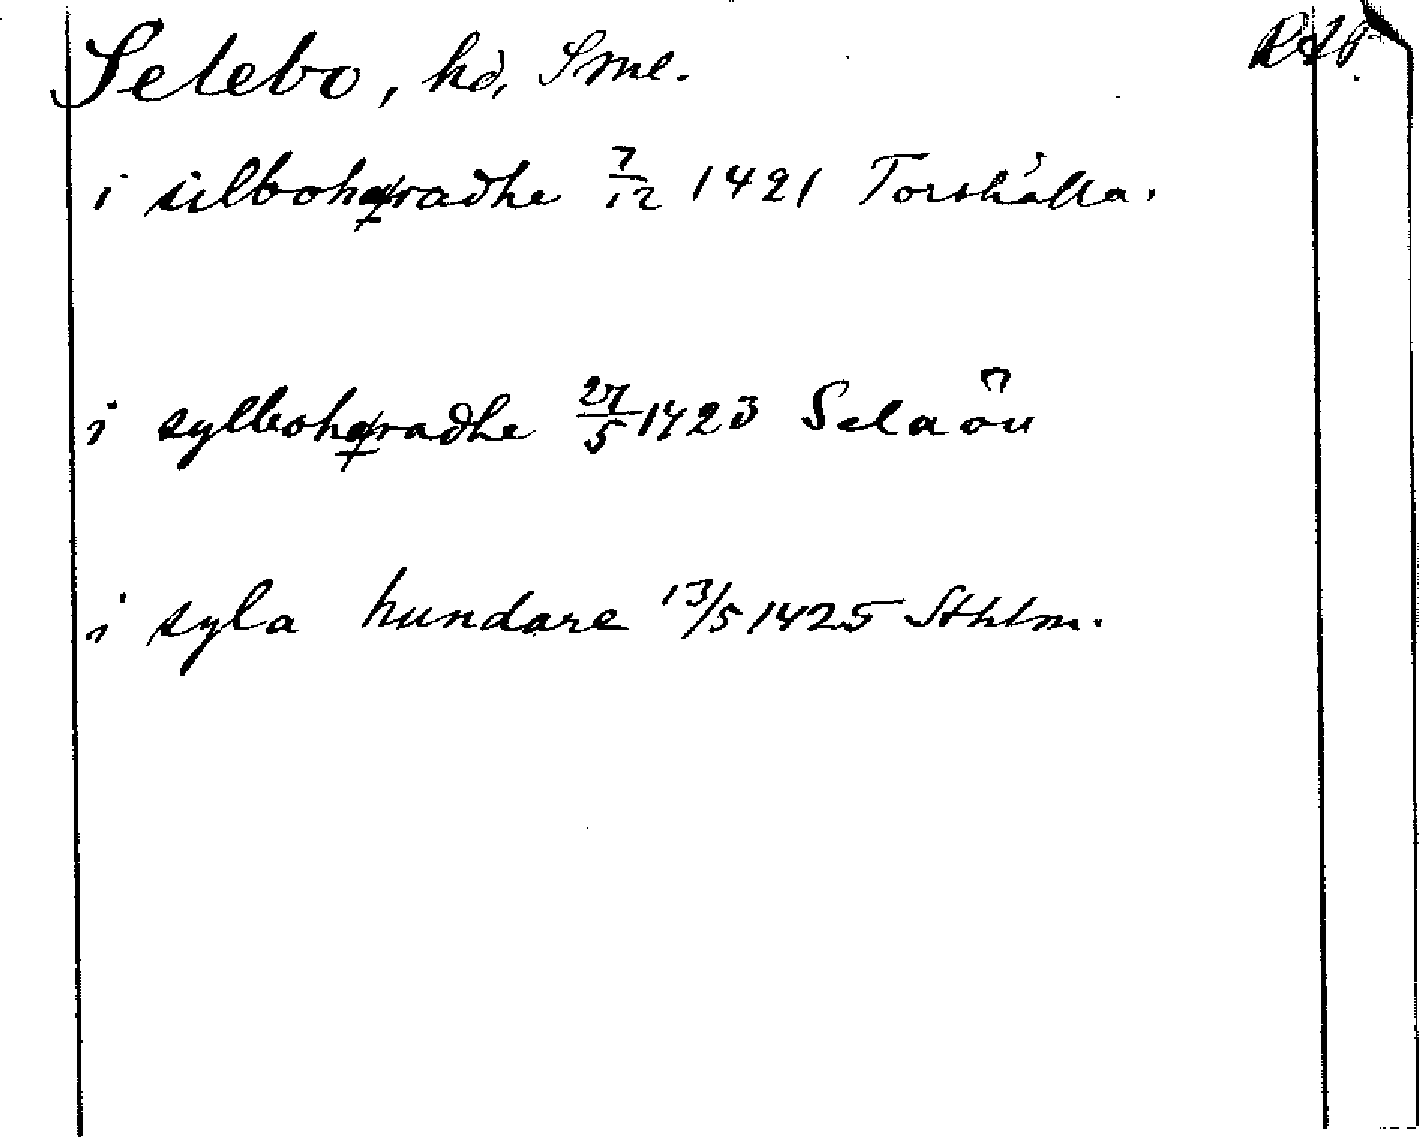 Selebo, hd, Sml. RAP.
i silbohæradhe 7/12 1421 Torshälla.
i sylbohæradhe 27/5 1423 Selaön
i syla hundare 13/5 1425 Sthlm.